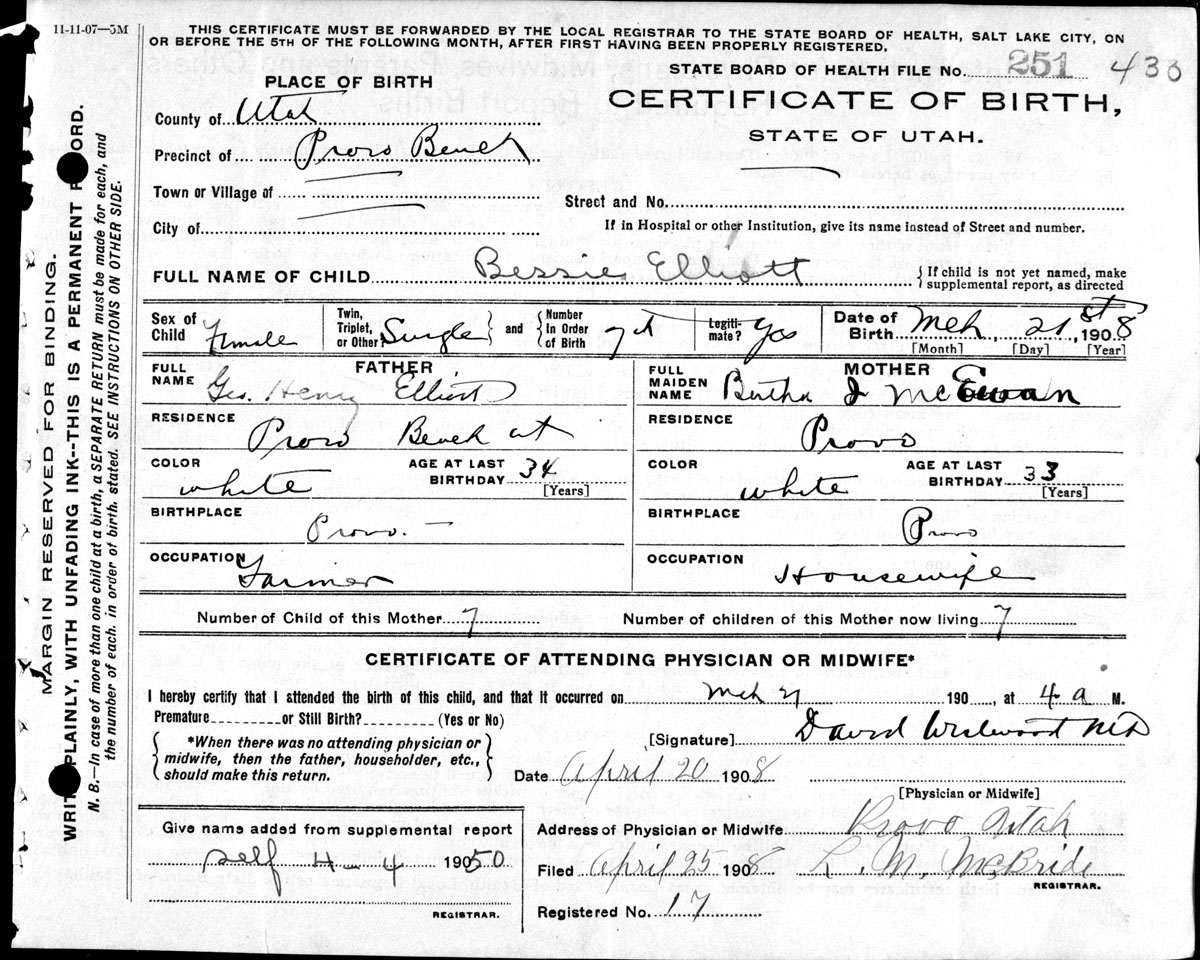 11-11-07—5M
THIS CERTIFICATE MUST BE FORWARDED BY THE LOCAL REGISTRAR TO THE STATE BOARD OF HEALTH, SALT LAKE CITY, ON
OR BEFORE THE 5TH OF THE FOLLOWING MONTH, AFTER FIRST HAVING BEEN PROPERLY REGISTERED.
STATE BOARD OF HEALTH FILE No. 251 433
CERTIFICATE OF BIRTH,
STATE OF UTAH.
PLACE OF BIRTH
County of Utah
Precinct of Provo Bench
Town or Village of
City of
Street and No.
If in Hospital or other Institution, give its name instead of Street and number.
FULL NAME OF CHILD Bessie Elliott
{ If child is not yet named, make
supplemental report, as directed
Sex of Child Female
Twin, Triplet, or Other Single } and { Number In Order of Birth 7th
Legitimate? Yes
Date of Birth Mch, 21st, 1908
[Month] [Day] [Year]
FATHER
FULL NAME Geo. Henry Elliott
RESIDENCE Provo Bench ut
COLOR white
AGE AT LAST BIRTHDAY 34
[Years]
BIRTHPLACE Provo. –
OCCUPATION Farmer
MOTHER
FULL MAIDEN NAME Bertha J McEwan
RESIDENCE Provo
COLOR white
AGE AT LAST BIRTHDAY 33
[Years]
BIRTHPLACE Provo
OCCUPATION Housewife
Number of Child of this Mother 7
Number of children of this Mother now living 7
CERTIFICATE OF ATTENDING PHYSICIAN OR MIDWIFE*
I hereby certify that I attended the birth of this child, and that it occurred on Mch 21 190 , at 4 a M.
Premature or Still Birth? (Yes or No)
{ *When there was no attending physician or
midwife, then the father, householder, etc.,
should make this return. }
[Signature] David Westwood MD
Date April 20 1908
[Physician or Midwife]
Give name added from supplemental report
self 4-4 1950
REGISTRAR.
Address of Physician or Midwife Provo Utah
Filed April 25 1908 L. M. McBride
REGISTRAR.
Registered No. 17
MARGIN RESERVED FOR BINDING.
WRIT PLAINLY, WITH UNFADING INK--THIS IS A PERMANENT R ORD.
N. B.—In case of more than one child at a birth, a SEPARATE RETURN must be made for each, and
the number of each, in order of birth, stated. SEE INSTRUCTIONS ON OTHER SIDE.